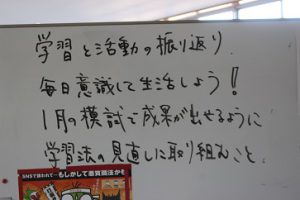 学習と活動の振り返り
毎日意識して生活しよう!
1月の模試で成果が出せるように
学習法の見直しに取り組むこと.
SNSで誘われて…もしかして悪質商法かも